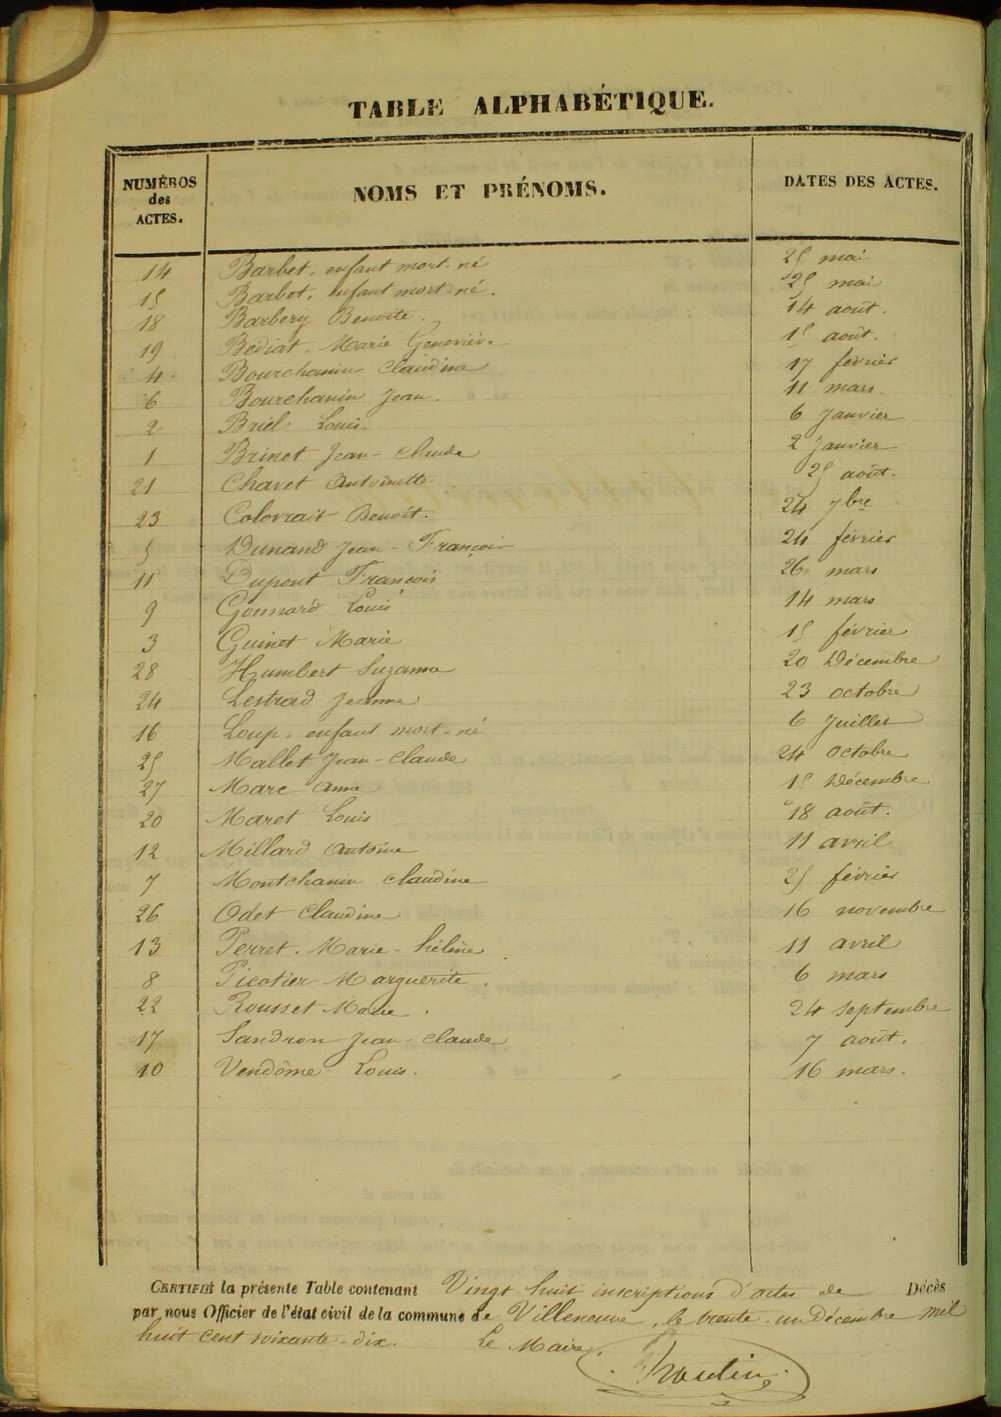 TABLE ALPHABÉTIQUE.
NUMÉROS des ACTES. NOMS ET PRÉNOMS. DATES DES ACTES.
14 Barbet, enfant mort-né 25 mai
15 Barbet, enfant mort-né. 25 mai
18 Barbery Benoite. 14 août.
19 Bédiat Marie Geneviève 15 août.
4 Bourchanin Claudine 17 février
6 Bourchanin Jean. 11 mars
2 Briel Louis. 6 Janvier
1 Brinet Jean-Claude 2 Janvier
21 Chavet Antoinette 25 août.
23 Colovrait Benoît. 24 7bre
5 Dunand Jean-François 24 février
11 Dupont François 26 mars
9 Gonnard Louis 14 mars
3 Guinet Marie 15 février
28 Humbert Suzanne 20 Décembre
24 Lestrad Jeanne 23 octobre
16 Loup, enfant mort-né 6 Juillet
25 Mallet Jean-Claude 24 octobre
27 Marc Anna 15 Décembre
20 Maret Louis 18 août.
12 Millard Antoine 11 avril
7 Montchanin Claudine 25 février
26 Odet Claudine 16 novembre
13 Perret. Marie-hélène 11 avril
8 Picotier Marguerite. 6 mars
22 Rousset Marie. 24 septembre
17 Sandron Jean-Claude 7 août.
10 Vendôme Louis. 16 mars.
CERTIFIÉ la présente Table contenant Vingt huit inscriptions d'actes de Décès
par nous Officier de l'état civil de la commune de Villeneuve, le trente-un Décembre mil
huit cent soixante-dix. Le Maire,